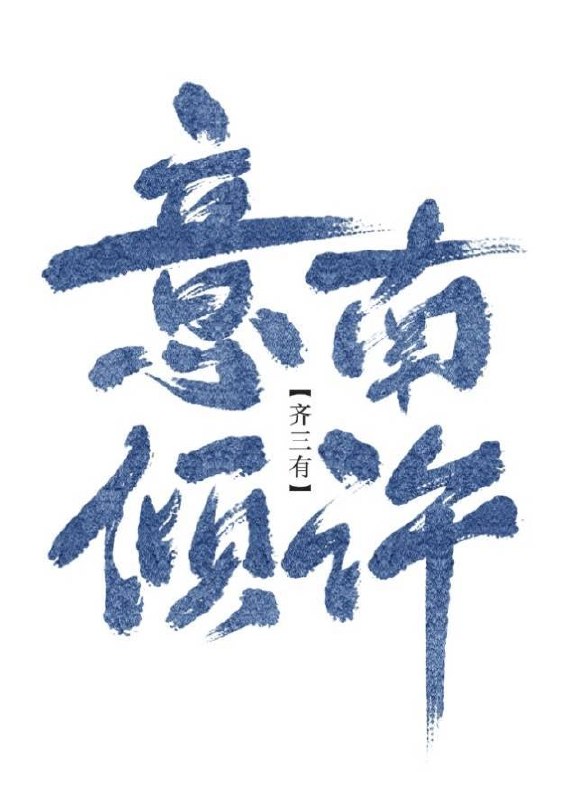 意南
倾许
【齐三有】